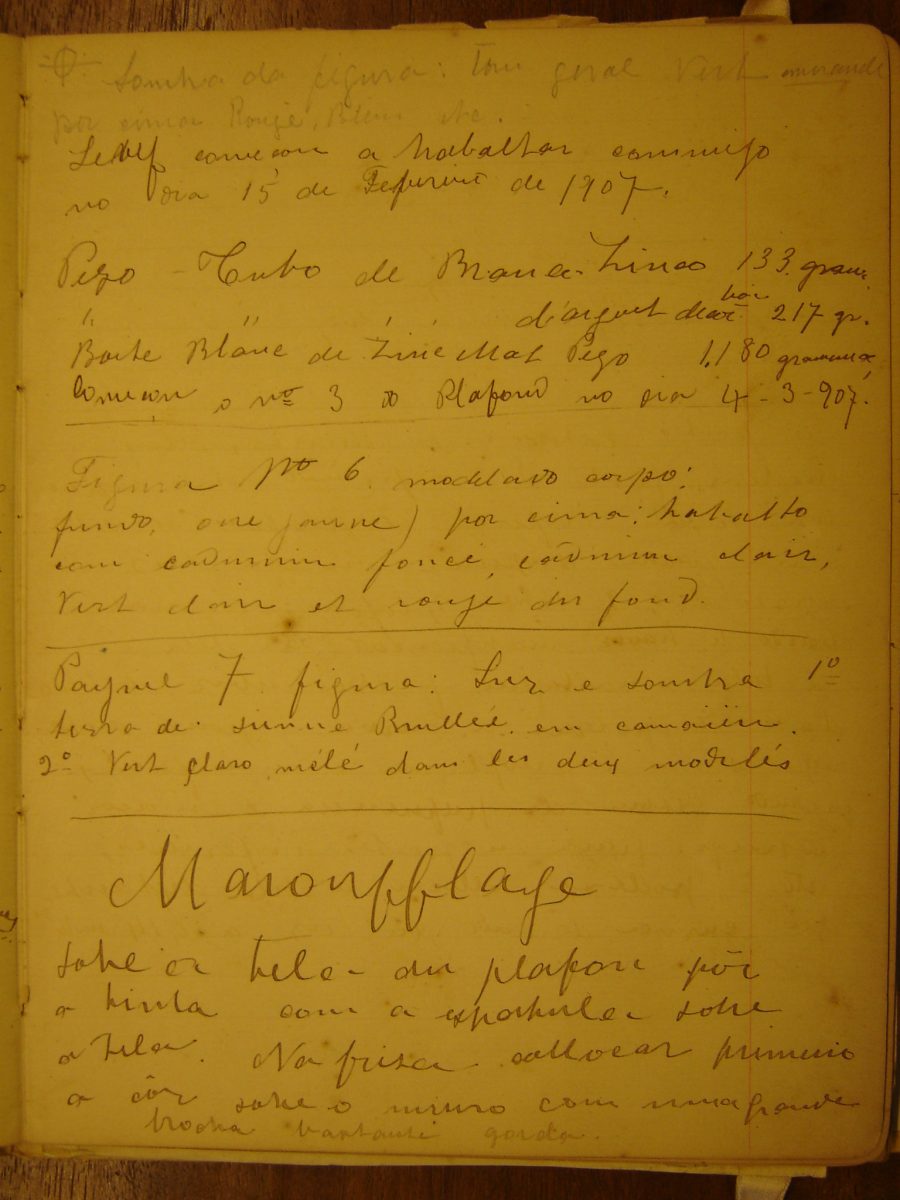 Sombra da figura: Tom geral Vert emeraude
por cima Rouge, Bleu etc.
começou a trabalhar commigo
no dia 15 de Fevreiro de 1907.
Pezo - Tubo de Branca-Zinco 133. gram.
" " d'argent 217 gr.
Boite Blanc de Zinc Mat Pezo 1,180 grammas
Começou o nº 3 do Plafond no dia 4-3-907.
Figura Nº 6 modelado corpo:
fundo, ocre jaune) por cima: trabalho
com cadmium foncé, cadmium clair,
Vert clair et rouge du fond.
7 figura: Luz e sombra 1º
terra de sienne Brulée em camaïeu.
2º Vert claro mêlé dans les deux modelés
Maroufflage
sobre a tela du plafon pôr
a tinta com a espatula sobre
a tela. Na friza collocar primeiro
a côr sobre o muro com uma grande
brocha bastante gorda.